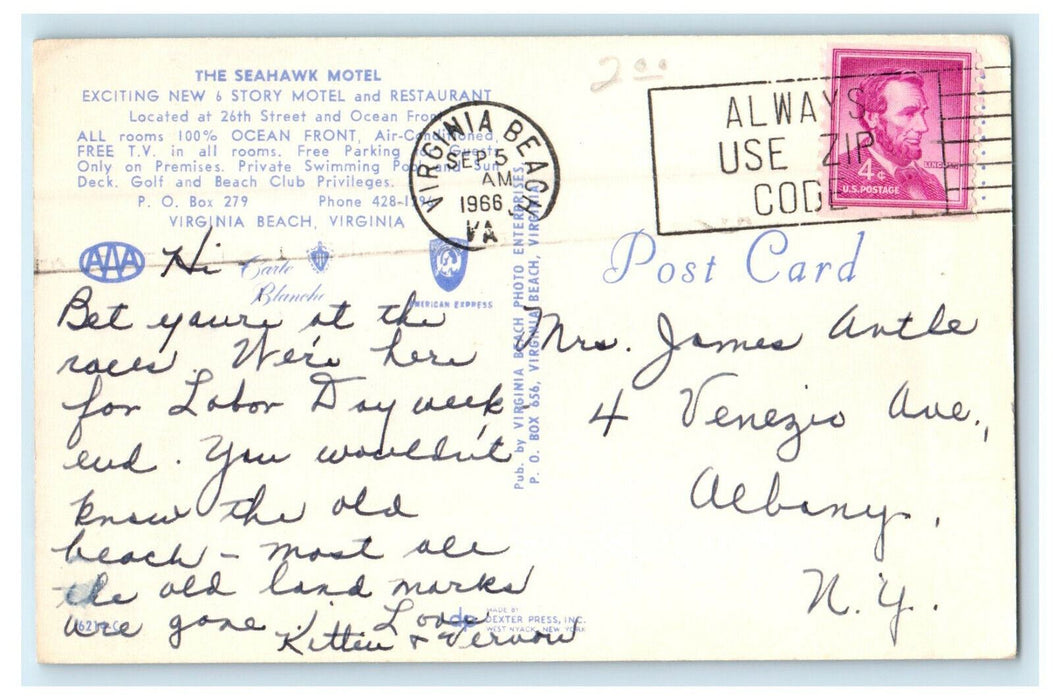 THE SEAHAWK MOTEL
EXCITING NEW 6 STORY MOTEL and RESTAURANT
Located at 26th Street and Ocean Fron
ALL rooms 100% OCEAN FRONT, Air-Conditioned,
FREE T.V. in all rooms. Free Parking Guests
Only on Premises. Private Swimming Pool and Sun
Deck. Golf and Beach Club Privileges.
P. O. Box 279 Phone 428-1296
VIRGINIA BEACH, VIRGINIA
AAA
Carte
Blanche
AMERICAN EXPRESS
Hi
Bet you're at the
races. We're here
for Labor Day week
end. You wouldn't
know the old
beach - most all
the old land marks
are gone! Love
Kittie & Vernon
VIRGINIA BEACH
SEP 5
AM
1966
VA
2.00
ALWAYS
USE ZIP
CODE
LINCOLN
4¢
U.S. POSTAGE
Post Card
Mrs. James Antle
4 Venezio Ave.,
Albany,
N.Y.
Pub. by VIRGINIA BEACH PHOTO ENTERPRISES,
P. O. BOX 656, VIRGINIA BEACH, VIRGINIA
dp
MADE BY
DEXTER PRESS, INC.
WEST NYACK, NEW YORK